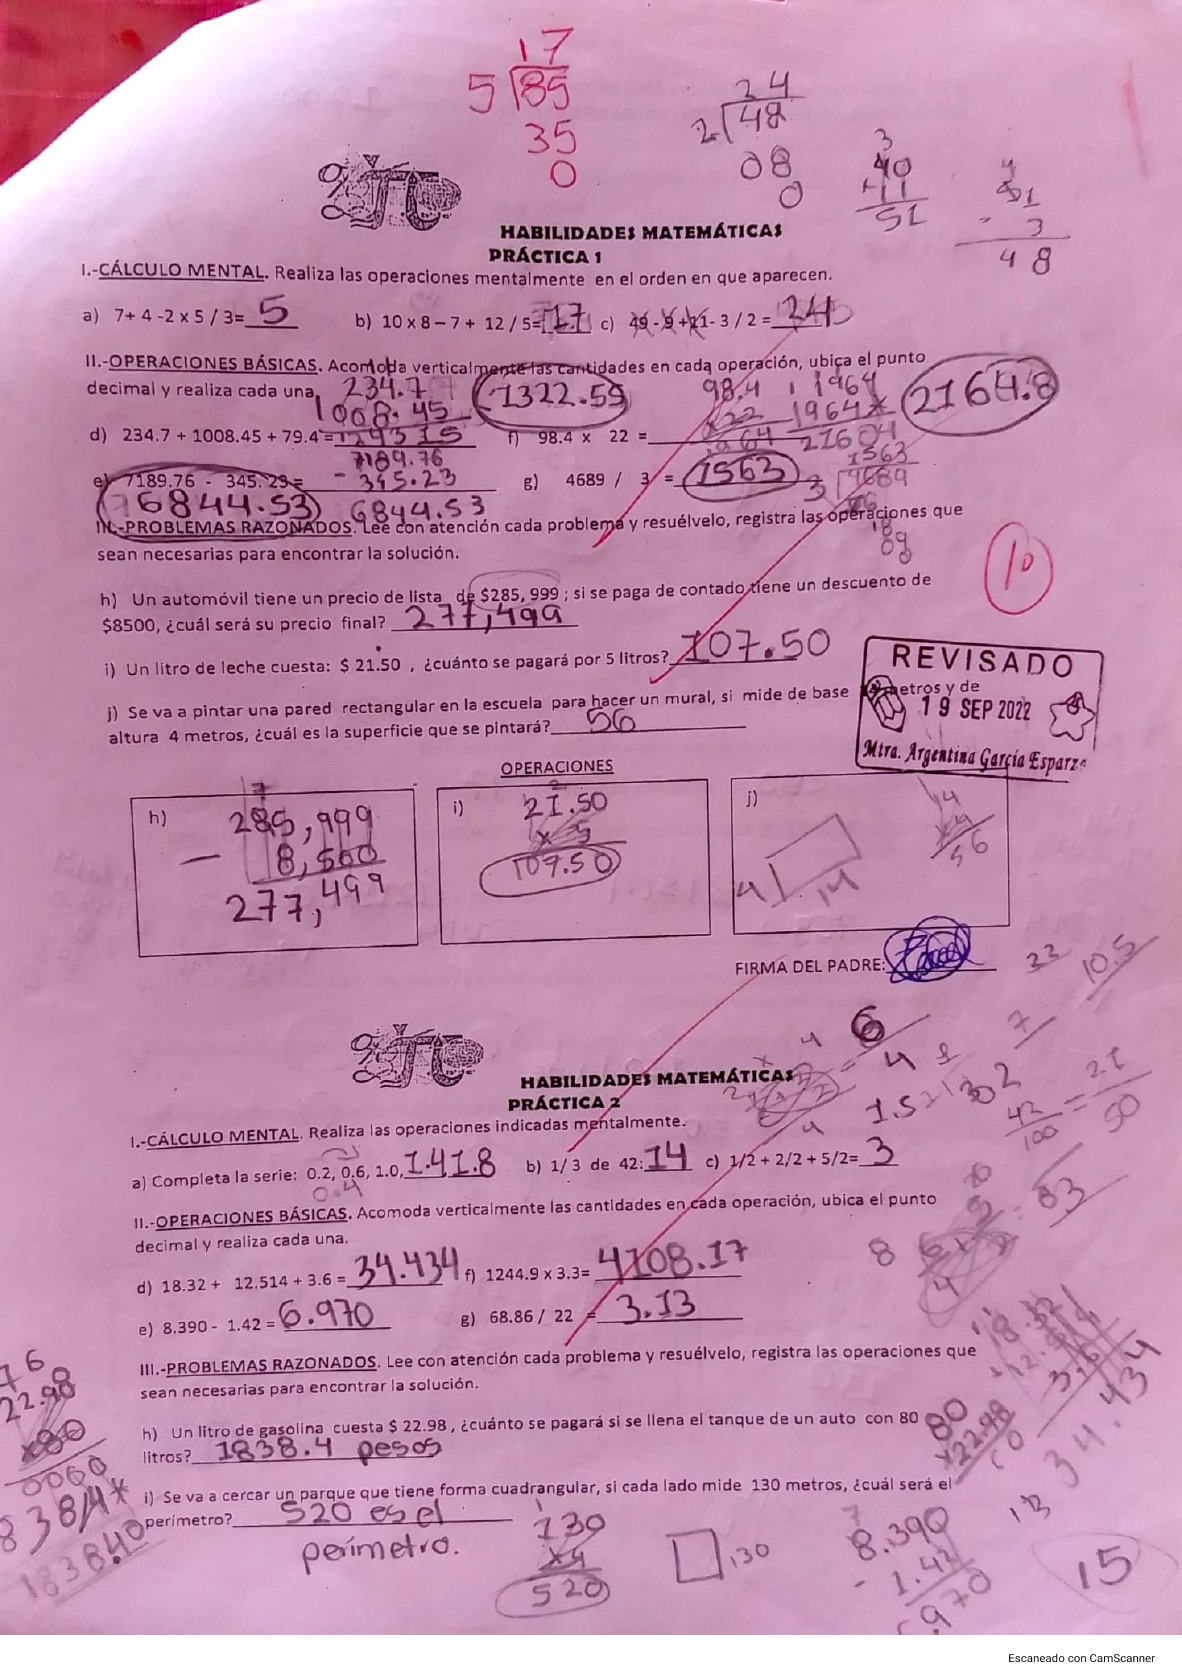 17
5 85
35
0
24
2 48
08
0
3
40
+11
51
4
51
- 3
48
HABILIDADES MATEMÁTICAS
PRÁCTICA 1
I.-CÁLCULO MENTAL. Realiza las operaciones mentalmente en el orden en que aparecen.
a) 7+ 4 -2 x 5 / 3= 5 b) 10 x 8 – 7 + 12 / 5= 17 c) 49 - 9 +11- 3 / 2 = 24
II.-OPERACIONES BÁSICAS. Acomoda verticalmente las cantidades en cada operación, ubica el punto
decimal y realiza cada una. 234.7 1322.55 98.4 1964 2164.8
1008.45 x22 1964x
d) 234.7 + 1008.45 + 79.4 = 1243 15 f) 98.4 x 22 =
7189.76 1563
e) 7189.76 - 345.23 = - 345.23 g) 4689 / 3 = 1563 3 4689
6844.53 6844.53
III.-PROBLEMAS RAZONADOS. Lee con atención cada problema y resuélvelo, registra las operaciones que
sean necesarias para encontrar la solución.
10
h) Un automóvil tiene un precio de lista de $285, 999 ; si se paga de contado tiene un descuento de
$8500, ¿cuál será su precio final? 277,499
i) Un litro de leche cuesta: $ 21.50 , ¿cuánto se pagará por 5 litros? 107.50
REVISADO
j) Se va a pintar una pared rectangular en la escuela para hacer un mural, si mide de base metros y de
19 SEP 2022
altura 4 metros, ¿cuál es la superficie que se pintará? 56
Mtra. Argentina García Esparza
OPERACIONES
h)
7
285,999
— 8,500
277,499
i)
2
21.50
x 5
107.50
j)
14
x4
56
4
14
FIRMA DEL PADRE:
22
7
10.5
HABILIDADES MATEMÁTICAS
PRÁCTICA 2
6
4
42
100
=
21
50
I.-CÁLCULO MENTAL. Realiza las operaciones indicadas mentalmente.
a) Completa la serie: 0.2, 0.6, 1.0, 1.4 1.8 b) 1/3 de 42: 14 c) 1/2 + 2/2 + 5/2= 3
0.4
II.-OPERACIONES BÁSICAS. Acomoda verticalmente las cantidades en cada operación, ubica el punto
decimal y realiza cada una.
d) 18.32 + 12.514 + 3.6 = 34.434 f) 1244.9 x 3.3= 4108.17
e) 8.390 - 1.42 = 6.970 g) 68.86 / 22 = 3.13
III.-PROBLEMAS RAZONADOS. Lee con atención cada problema y resuélvelo, registra las operaciones que
sean necesarias para encontrar la solución.
76
22.98
x80
0000
1838.40
80
x22.98
34.434
h) Un litro de gasolina cuesta $ 22.98 , ¿cuánto se pagará si se llena el tanque de un auto con 80
litros? 1838.4 pesos
i) Se va a cercar un parque que tiene forma cuadrangular, si cada lado mide 130 metros, ¿cuál será el
perímetro? 520 es el
perímetro.
1
130
x4
520
130
7
8.390
- 1.42
6.970
15
Escaneado con CamScanner